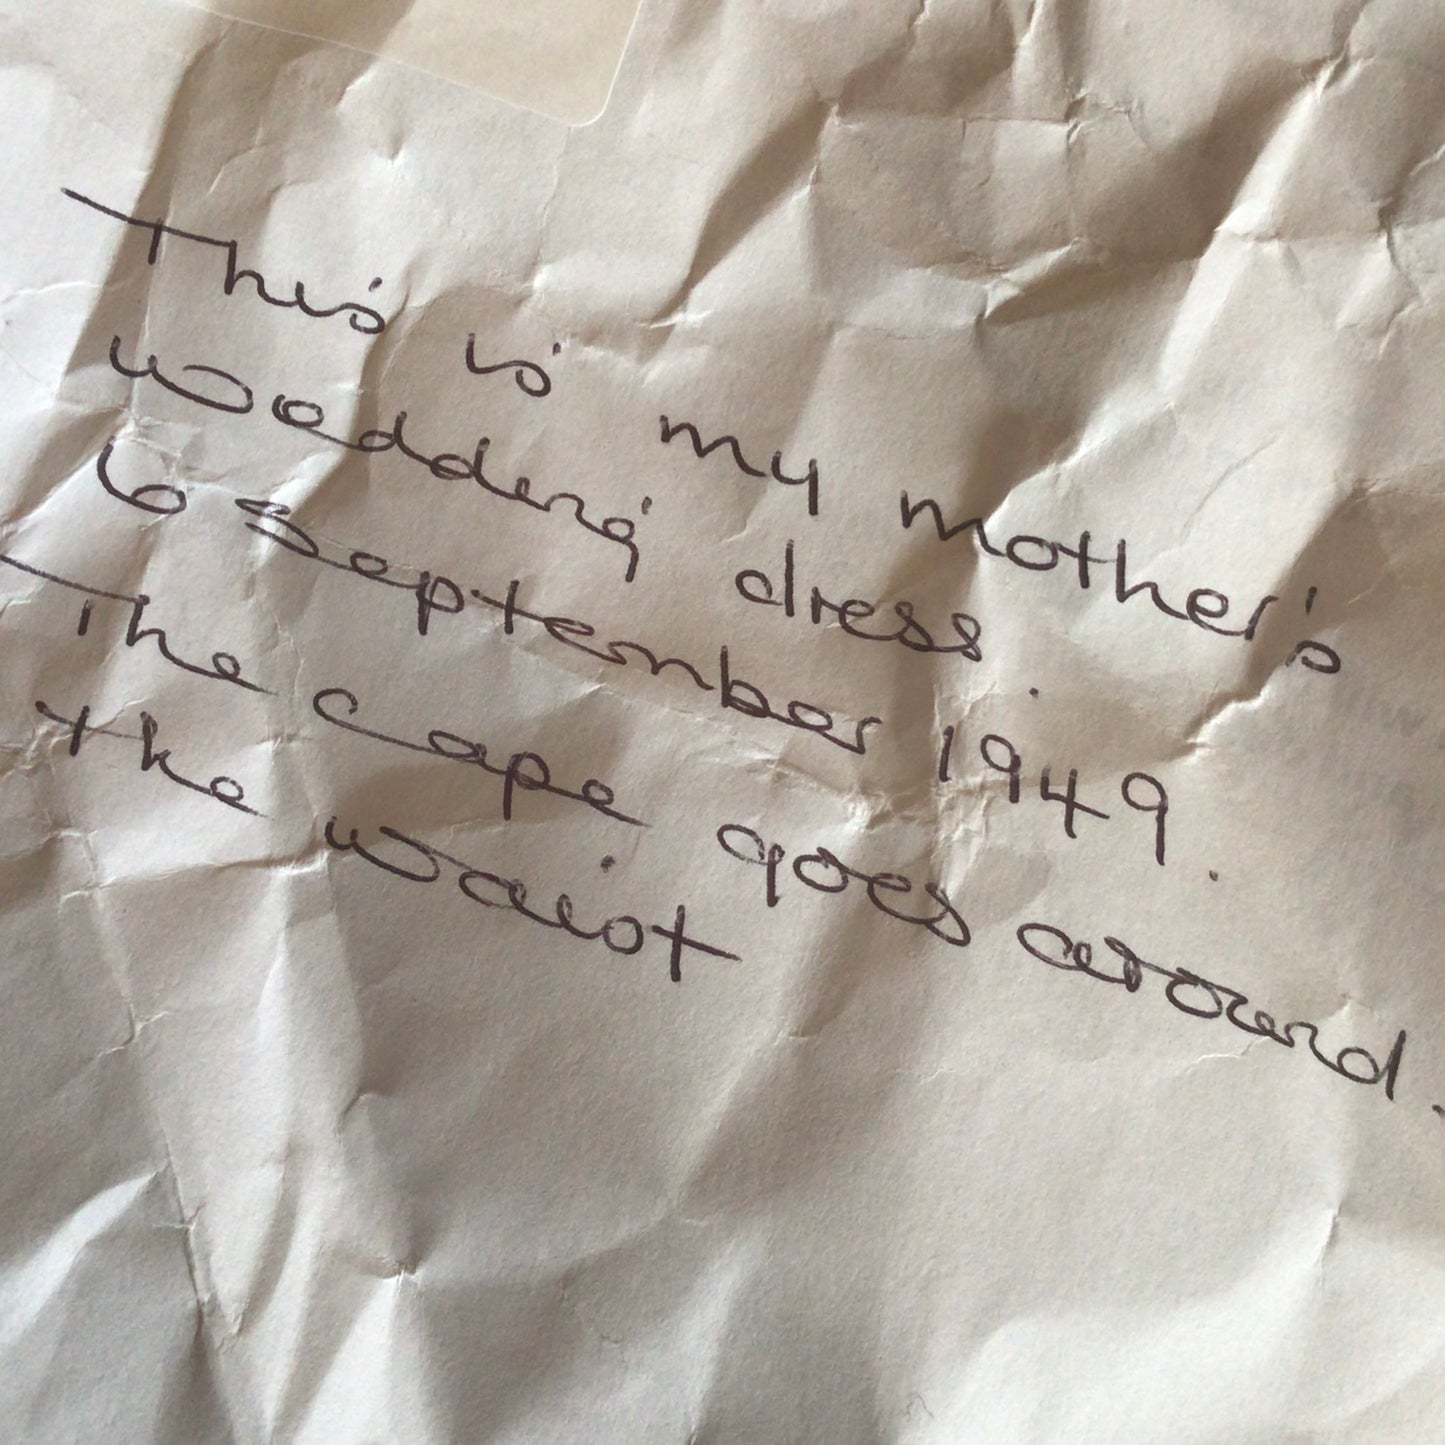 This is my mother's
wedding dress.
6 September 1949.
The cape goes around.
the waist